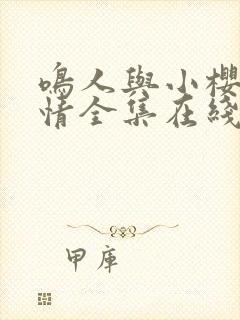 鳴人與小櫻
情全集在綫
甲库